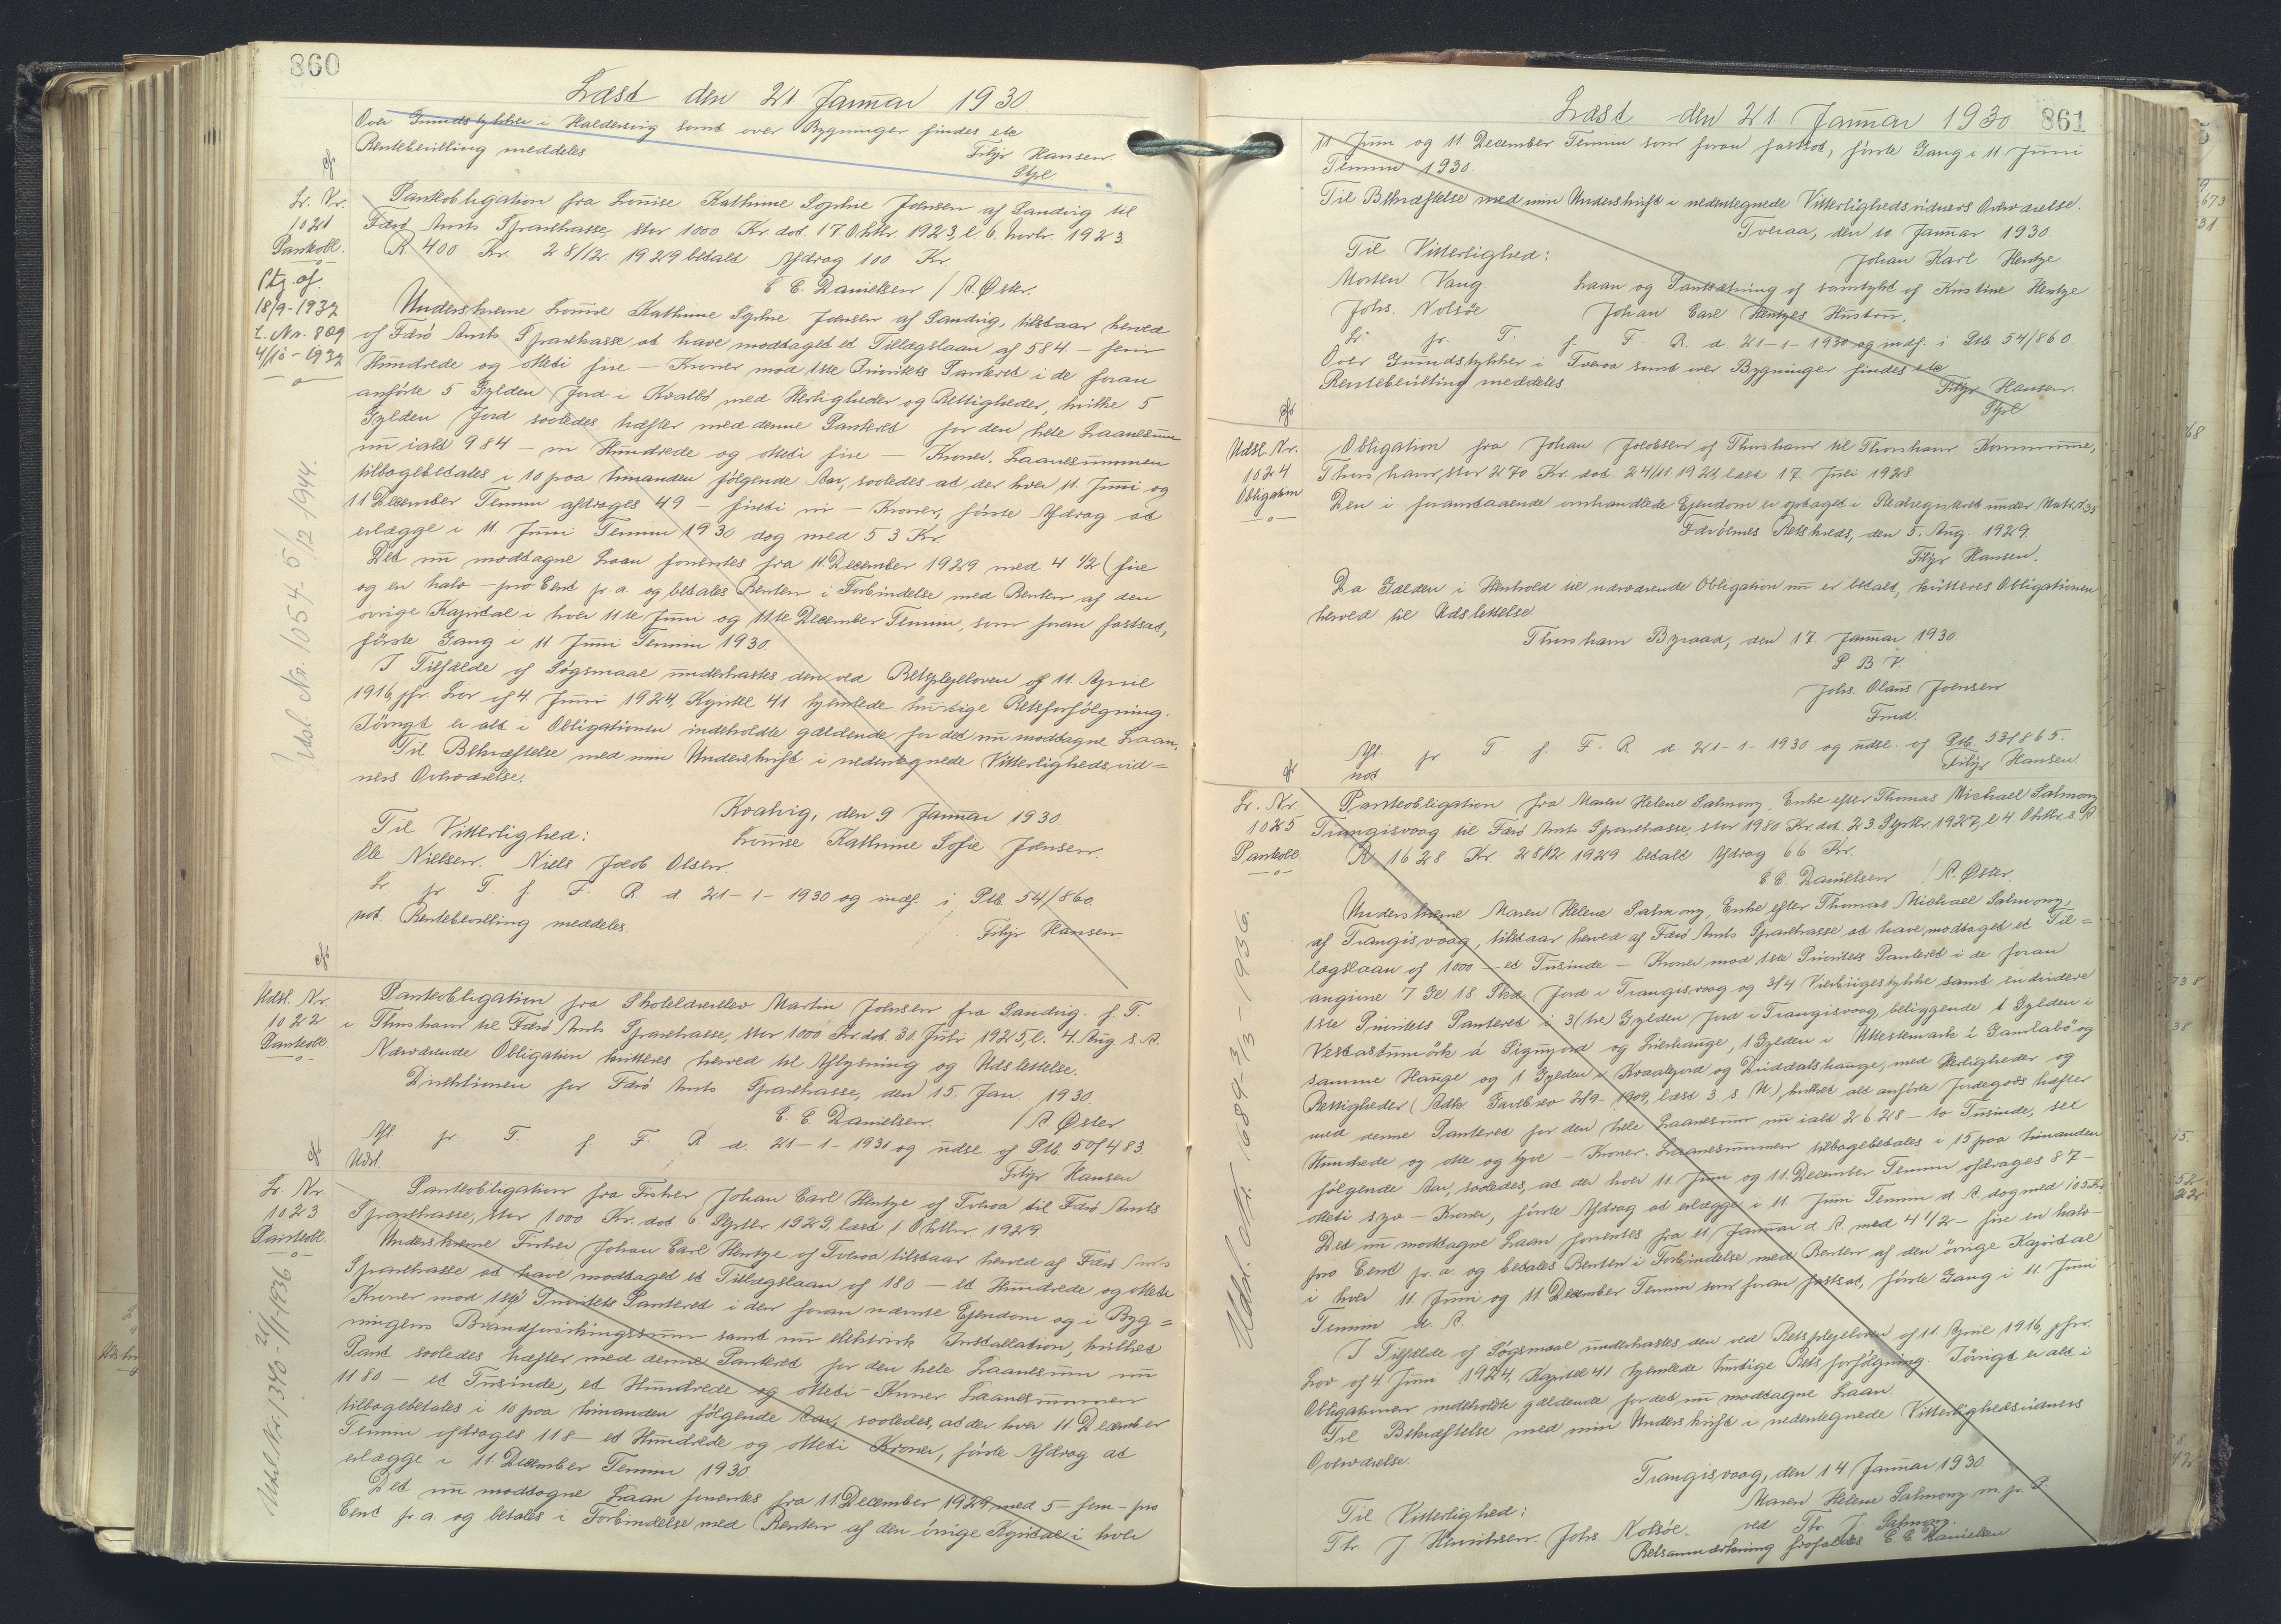 860
Læst den 21 Januar 1930
Over Grundstykker i Haldersvig samt over Bygninger findes etc
Rentebevilling meddeles
Filip Hansen
Stpl.
Lr. Nr.
1021
Pantobl.
Ptg. af.
18/9-1937
L. Nr. 809
4/10-1937
Pantobligation fra Louise Kathrine Sophie Joensen af Sandvig til
Færø Amts Sparekasse, stor 1000 Kr. dat. 17 Oktbr. 1923, l. 6. Novbr. 1923.
R. 400 Kr. 28/12. 1929 betalt Afdrag 100 Kr.
C. C. Danielsen / R. Øster.
Underskrevne Louise Kathrine Sophie Joensen af Sandvig, tilstaar herved
af Færø Amts Sparekasse at have modtaget et Tillægslaan af 584 – fem
Hundrede og otteti fire – Kroner mod 1ste Prioritets Panteret i de foran
anførte 5 Gylden Jord i Kvalbø med Herligheder og Rettigheder, hvilke 5
Gylden Jord saaledes hæfter med denne Panteret for den hele Laanesum
nu ialt 984 – ni Hundrede og otteti fire – Kroner. Laanesummen
tilbagebetales i 10 paa hinanden følgende Aar, saaledes at der hver 11. Juni og
11 December Termin afdrages 49 – firti ni – Kroner, første Afdrag at
erlægge i 11 Juni Termin 1930 dog med 53 Kr.
Det nu modtagne Laan forrentes fra 11 December 1929 med 4 1/2 (fire
og en halv – pro Cent pr. a. og betales Renten i Forbindelse med Renten af den
øvrige Kapital i hver 11te Juni og 11te December Termin, som foran fastsat,
første Gang i 11 Juni Termin 1930.
I Tilfælde af Søgsmaal underkastes den ved Retsplejeloven af 11. April
1916, jfr. Lov af 4. Juni 1924, Kapitel 41 hjemlede hurtige Retsforfølgning.
Iøvrigt er alt i Obligationen indeholdte gældende for det nu modtagne Laan.
Til Bekræftelse med min Underskrift i nedentegnede Vitterlighedsvid=
ners Overværelse.
Kvalvig, den 9 Januar 1930.
Louise Kathrine Sofie Joensen.
Til Vitterlighed:
Ole Nielsen. Niels Jacob Olsen.
Lr. pr T. f. F. R. d. 21-1-1930 og indf. i Ptb. 54/860.
not. Rentebevilling meddeles.
Filip Hansen
Udsl. Nr. 1054 - 5/12 1944.
Udsl. Nr.
1022
Pantobl.
Pantobligation fra Skolelærerelev Martin Johnsen fra Sandvig. f. T.
i Thorshavn til Færø Amts Sparekasse, stor 1000 Kr. dat. 30. Juli 1925, l. 4. Aug s. A.
Nærværende Obligation kvitteres herved til Aflysning og Udslettelse.
Direktionen for Færø Amts Sparekasse, den 15. Jan. 1930.
C. C. Danielsen. / R. Øster
Afl. pr T. f. F. R. d. 21-1-1930 og udsl. af Ptb. 50/483.
Udsl.
Filip Hansen
Lr. Nr.
1023
Pantobl.
Pantobligation fra Fisker Johan Carl Hentze af Tveraa til Færø Amts
Sparekasse, stor 1000 Kr. dat. 6. Septbr. 1929, læst 1. Oktbr. 1929.
Underskrevne Fisker Johan Carl Hentze af Tveraa tilstaar herved af Færø Amts
Sparekasse at have modtaget et Tillægslaan af 180 – et Hundrede og otteti
Kroner mod 1ste Prioritets Panteret i den foran nævnte Ejendom og i Byg=
ningens Brandforsikringssum samt nu elektrisk Installation, hvilket
Pant saaledes hæfter med denne Panteret for den hele Laanesum nu
1180 – et Tusinde, et Hundrede og otteti – Kroner. Laanesummen
tilbagebetales i 10 paa hinanden følgende Aar, saaledes, at der hver 11 December
Termin afdrages 118 – et Hundrede og otteti Kroner, første Afdrag at
erlægge i 11 December Termin 1930.
Det nu modtagne Laan forrentes fra 11 December 1929 med 5 – fem – pro
Cent pr. a. og betales i Forbindelse med Renten af den øvrige Kapital i hver
861
Læst den 21 Januar 1930
11 Juni og 11 December Termin som foran fastsat, første Gang i 11 Juni
Termin 1930.
Til Bekræftelse med min Underskrift i nedentegnede Vitterlighedsvidners Overværelse.
Tveraa, den 10. Januar 1930.
Johan Karl Hentze
Til Vitterlighed:
Morten Vang
Johs. Nolsøe
Laan og Pantsætning af samtykt af Kristine Hentze
Johan Carl Hentzes Hustru.
Lr. pr. T. f. F. R. d. 21-1-1930 og indf. i Ptb. 54/860.
Over Grundstykker i Tveraa samt over Bygninger findes etc
Rentebevilling meddeles.
Filip Hansen.
Stpl
Udsl. Nr.
1024
Obligation
Obligation fra Johan Jacobsen af Thorshavn til Thorshavn Kommune,
Thorshavn, stor 270 Kr. dat 24/11 1924, læst 17. Juli 1928
Den i foranstaaende omhandlede Ejendom er optaget i Realregistret under Matr.
Færøernes Retskreds, den 5. Aug. 1929.
Filip Hansen.
Da Gælden i Henhold til nærværende Obligation nu er betalt, kvitteres Obligationen
herved til Udslettelse
Thorshavn Byraad, den 17. Januar 1930.
P. B. V.
Johs. Olaus Joensen
Fmd.
Afl. pr T. f. F. R. d. 21-1-1930 og udsl. af Ptb. 53/865.
not
Filip Hansen.
Lr. Nr.
1025
Pantobl
Pantobligation fra Maren Helene Salmony, Enke efter Thomas Michael Salmony
Trangisvaag til Færø Amts Sparekasse, stor 1980 Kr. dat. 23. Septbr 1927, l. 4 Oktbr. s. A.
R. 1628 Kr. 28/12 1929 betalt Afdrag 66 Kr.
C. C. Danielsen / R. Øster.
Underskrevne Maren Helene Salmony, Enke efter Thomas Michael Salmony,
af Trangisvaag, tilstaar herved af Færø Amts Sparekasse at have modtaget et Til=
lægslaan af 1000 – et Tusinde – Kroner mod 1ste Prioritets Panteret i de foran
angivne 7 Gl 18. Skd. Jord i Trangisvaag og 3/4 samt endvidere
1ste Prioritets Panteret i 3 (tre) Gylden Jord i Trangisvaag, beliggende 1 Gylden i
á og 1 Gylden i og
samme Hauge og 1 Gylden i og med Herligheder og
Rettigheder (Adk. 2/9-1909, læst 3 s. M.) hvilket alt anførte Jordegods hæfter
med denne Panteret for den hele Laanesum nu ialt 2628 – to Tusinde, sex
Hundrede og otte og tyve – Kroner. Laanesummen tilbagebetales i 15 paa hinanden
følgende Aar, saaledes, at der hver 11. Juni og 11. December Termin afdrages 87 –
otteti syv – Kroner, første Afdrag at erlægge i 11. Juni Termin d. A. dog med 105 Kr
Det nu modtagne Laan forrentes fra 11 Januar d. A. med 4 1/2 – fire en halv –
pro Cent pr. a. og betales Renten i Forbindelse med Renten af den øvrige Kapital
i hver 11. Juni og 11 December Termin som foran fastsat, første Gang i 11. Juni
Termin d. A.
I Tilfælde af Søgsmaal underkastes den ved Retsplejeloven af 11. April 1916, jfr.
Lov af 4. Juni 1924, Kapitel 41 hjemlede hurtige Retsforfølgning. Iøvrigt er alt i
Obligationen indeholdte gældende for det nu modtagne Laan.
Til Bekræftelse med min Underskrift i nedentegnede Vitterlighedsvidners
Overværelse.
Trangisvaag, den 14 Januar 1930.
Maren Helene Salmony m. p. P.
ved Th. J. Salmony.
Til Vitterlighed:
Th. J. Henriksen. Johs. Nolsøe.
Retsanmærkning frafaldes C. C. Danielsen
Udsl. Nr. 1340 - 21/1-1936
Udsl. Nr. 1684 - 3/3-1936.